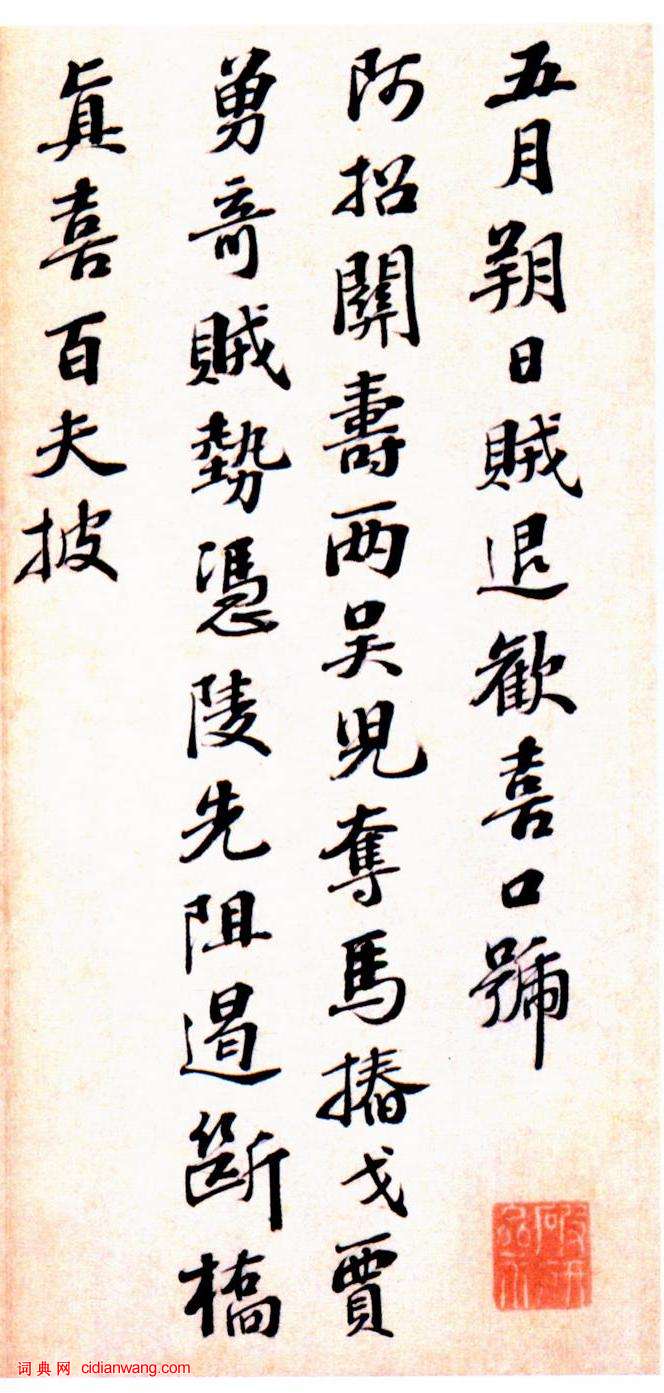 五月朔日賊退歡喜口號
阿招關壽兩吴兒奪馬摏戈賈
勇奇賊勢憑陵先阻遏斷橋
真喜百夫披
词典网 cidianwang.com